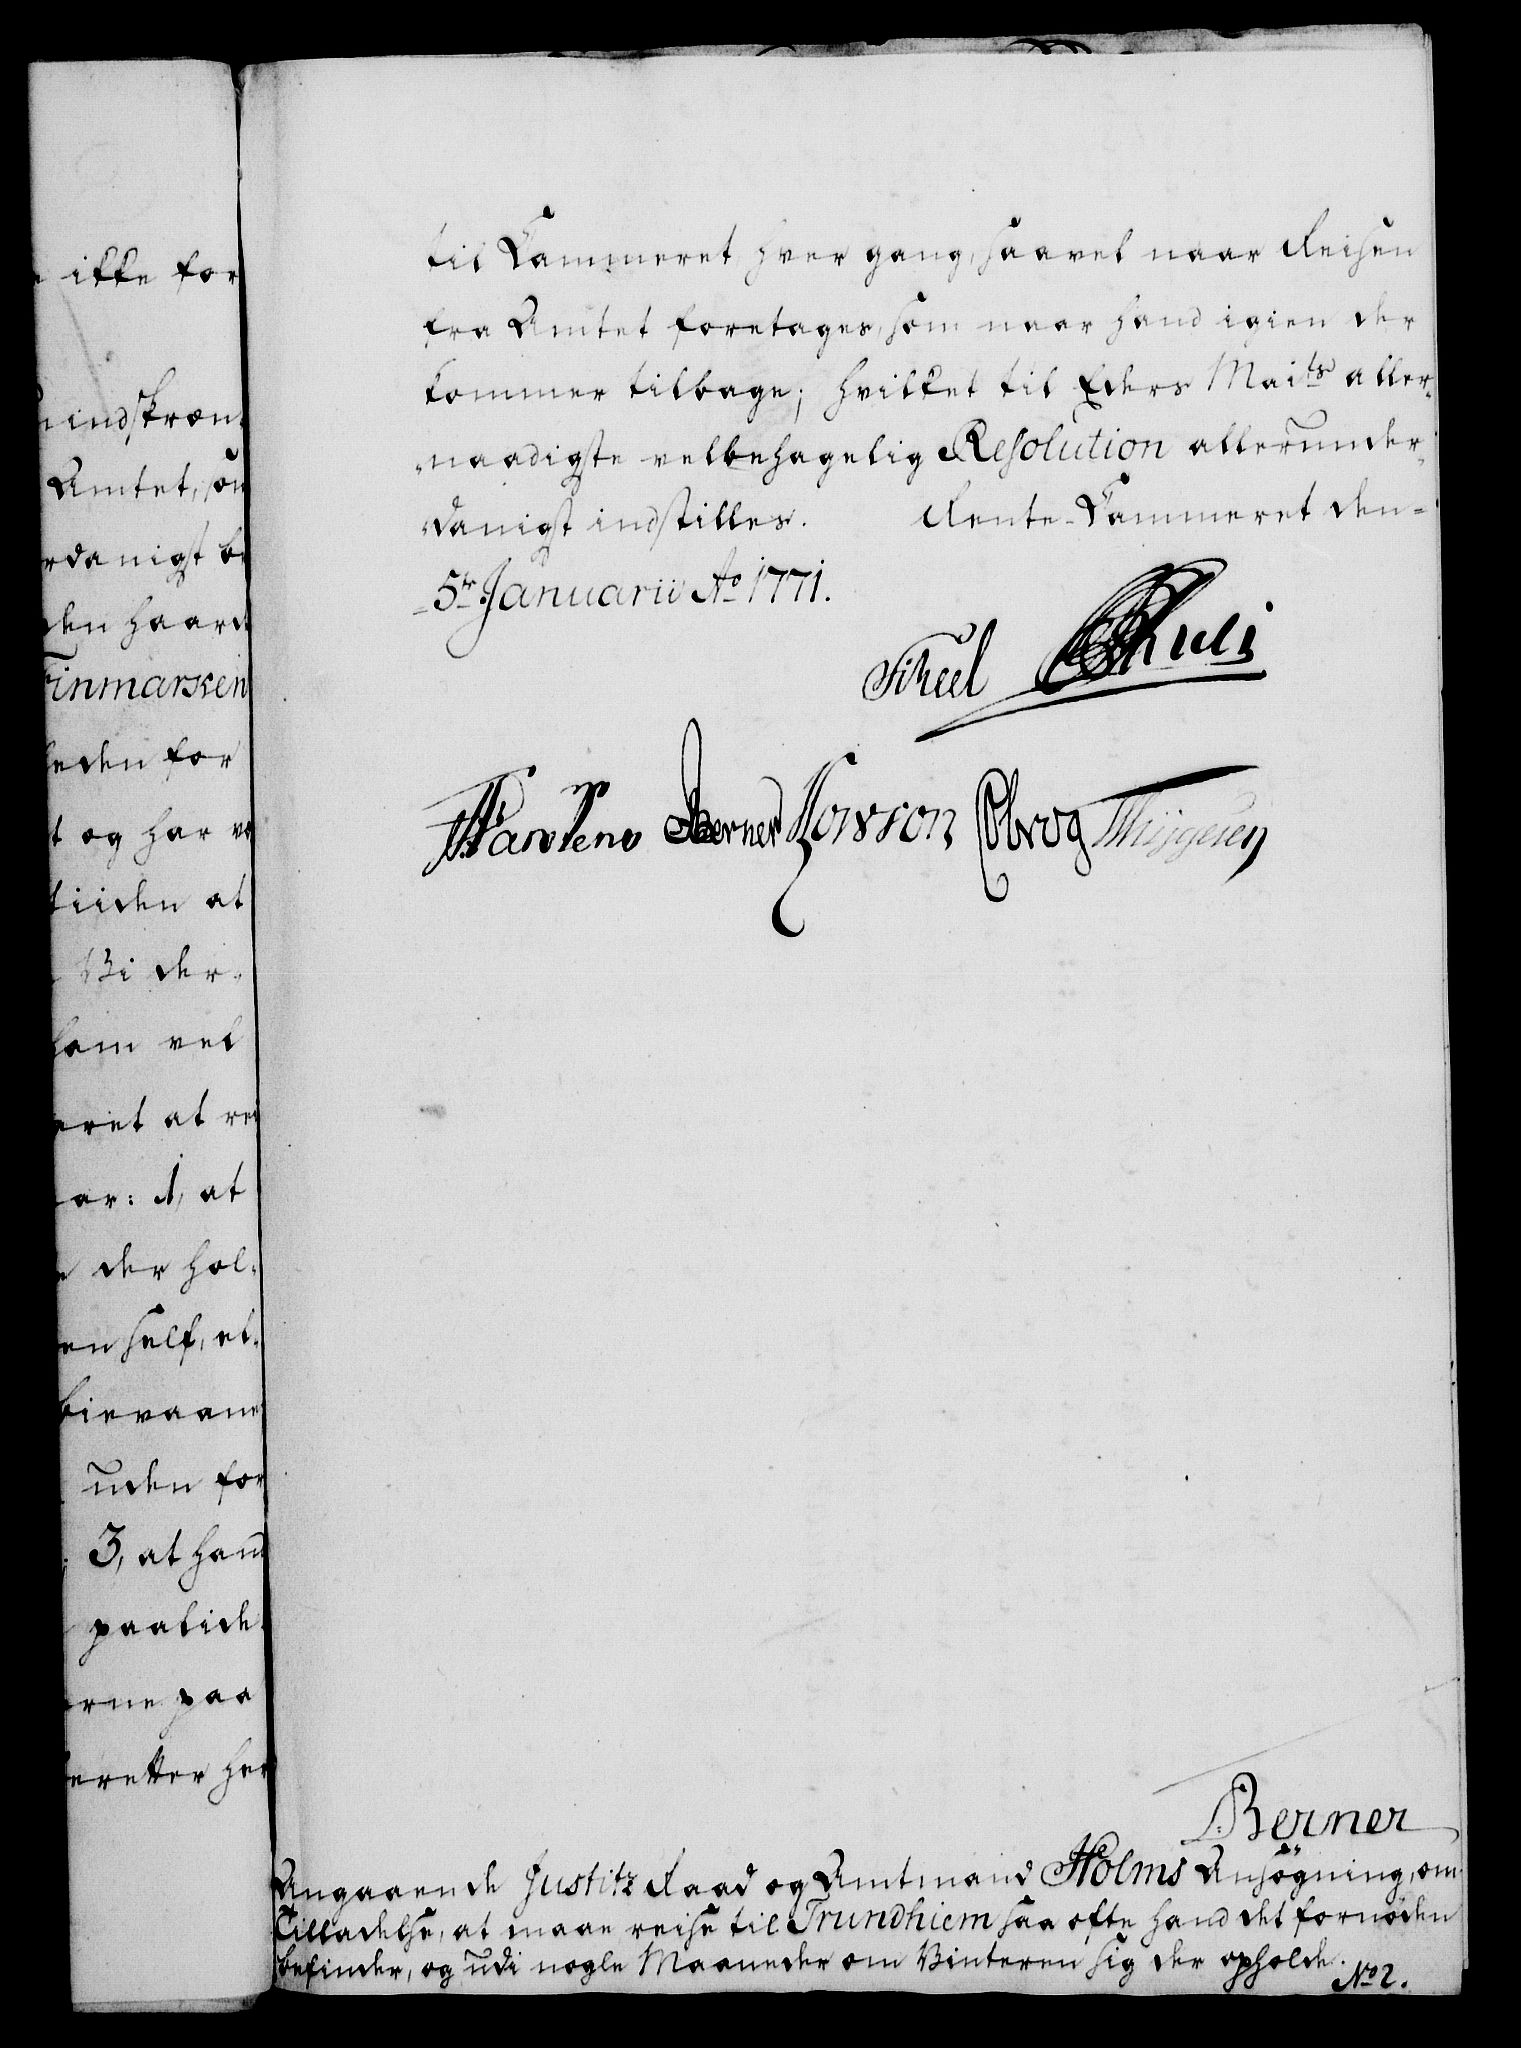 ikke for
indskræn-
Amtet, søn
rdanigst be
den haard
Finmarken
heden for
t og har væ
tiiden at
Vi der-
ham vel
eret at rei
ar: 1, at
der hol-
en self, el-
bievaane
uden for
3, at hand
paalide-
erne paa
beretter her
til Cammeret hver gang, saavel naar Reisen
fra Amtet foretages, som naar hand igien der
kommer tilbage; hvilket til Eders Maits aller-
naadigste velbehagelig Resolution allerunder-
danigst indstilles. Rente-Cammeret den
5te Januarii Ao 1771.
Scheel
Berner
Berner
Angaaende Justitz Raad og Amtmand Holms Ansøgning, om
Tilladelse, at maae reise til Trundhiem saa ofte hand det fornøden
befinder, og udi nogle Maaneder om Vinteren sig der opholde.
No 2.